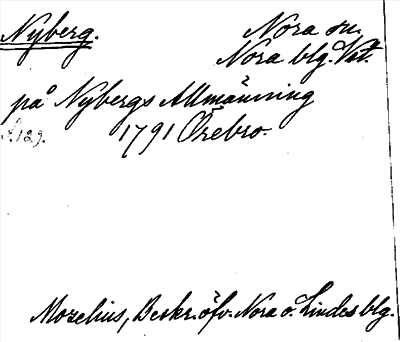 Nyberg. Nora sn.
Nora blg. Vst.
på Nybergs Allmänning
S. 129. 1791 Örebro.
Mozelius, Beskr. öfv. Nora o. Lindes blg.